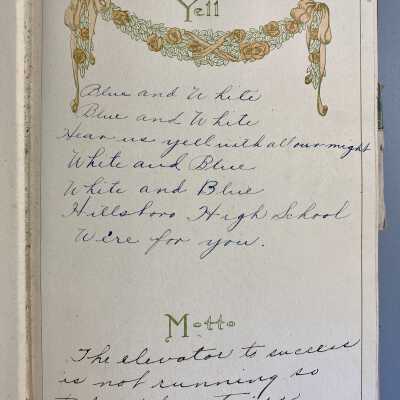 Yell
Blue and White
Blue and White
Hear us yell with all our might
White and Blue
White and Blue
Hillsboro High School
We're for you.
Motto
The elevator to success
is not running so